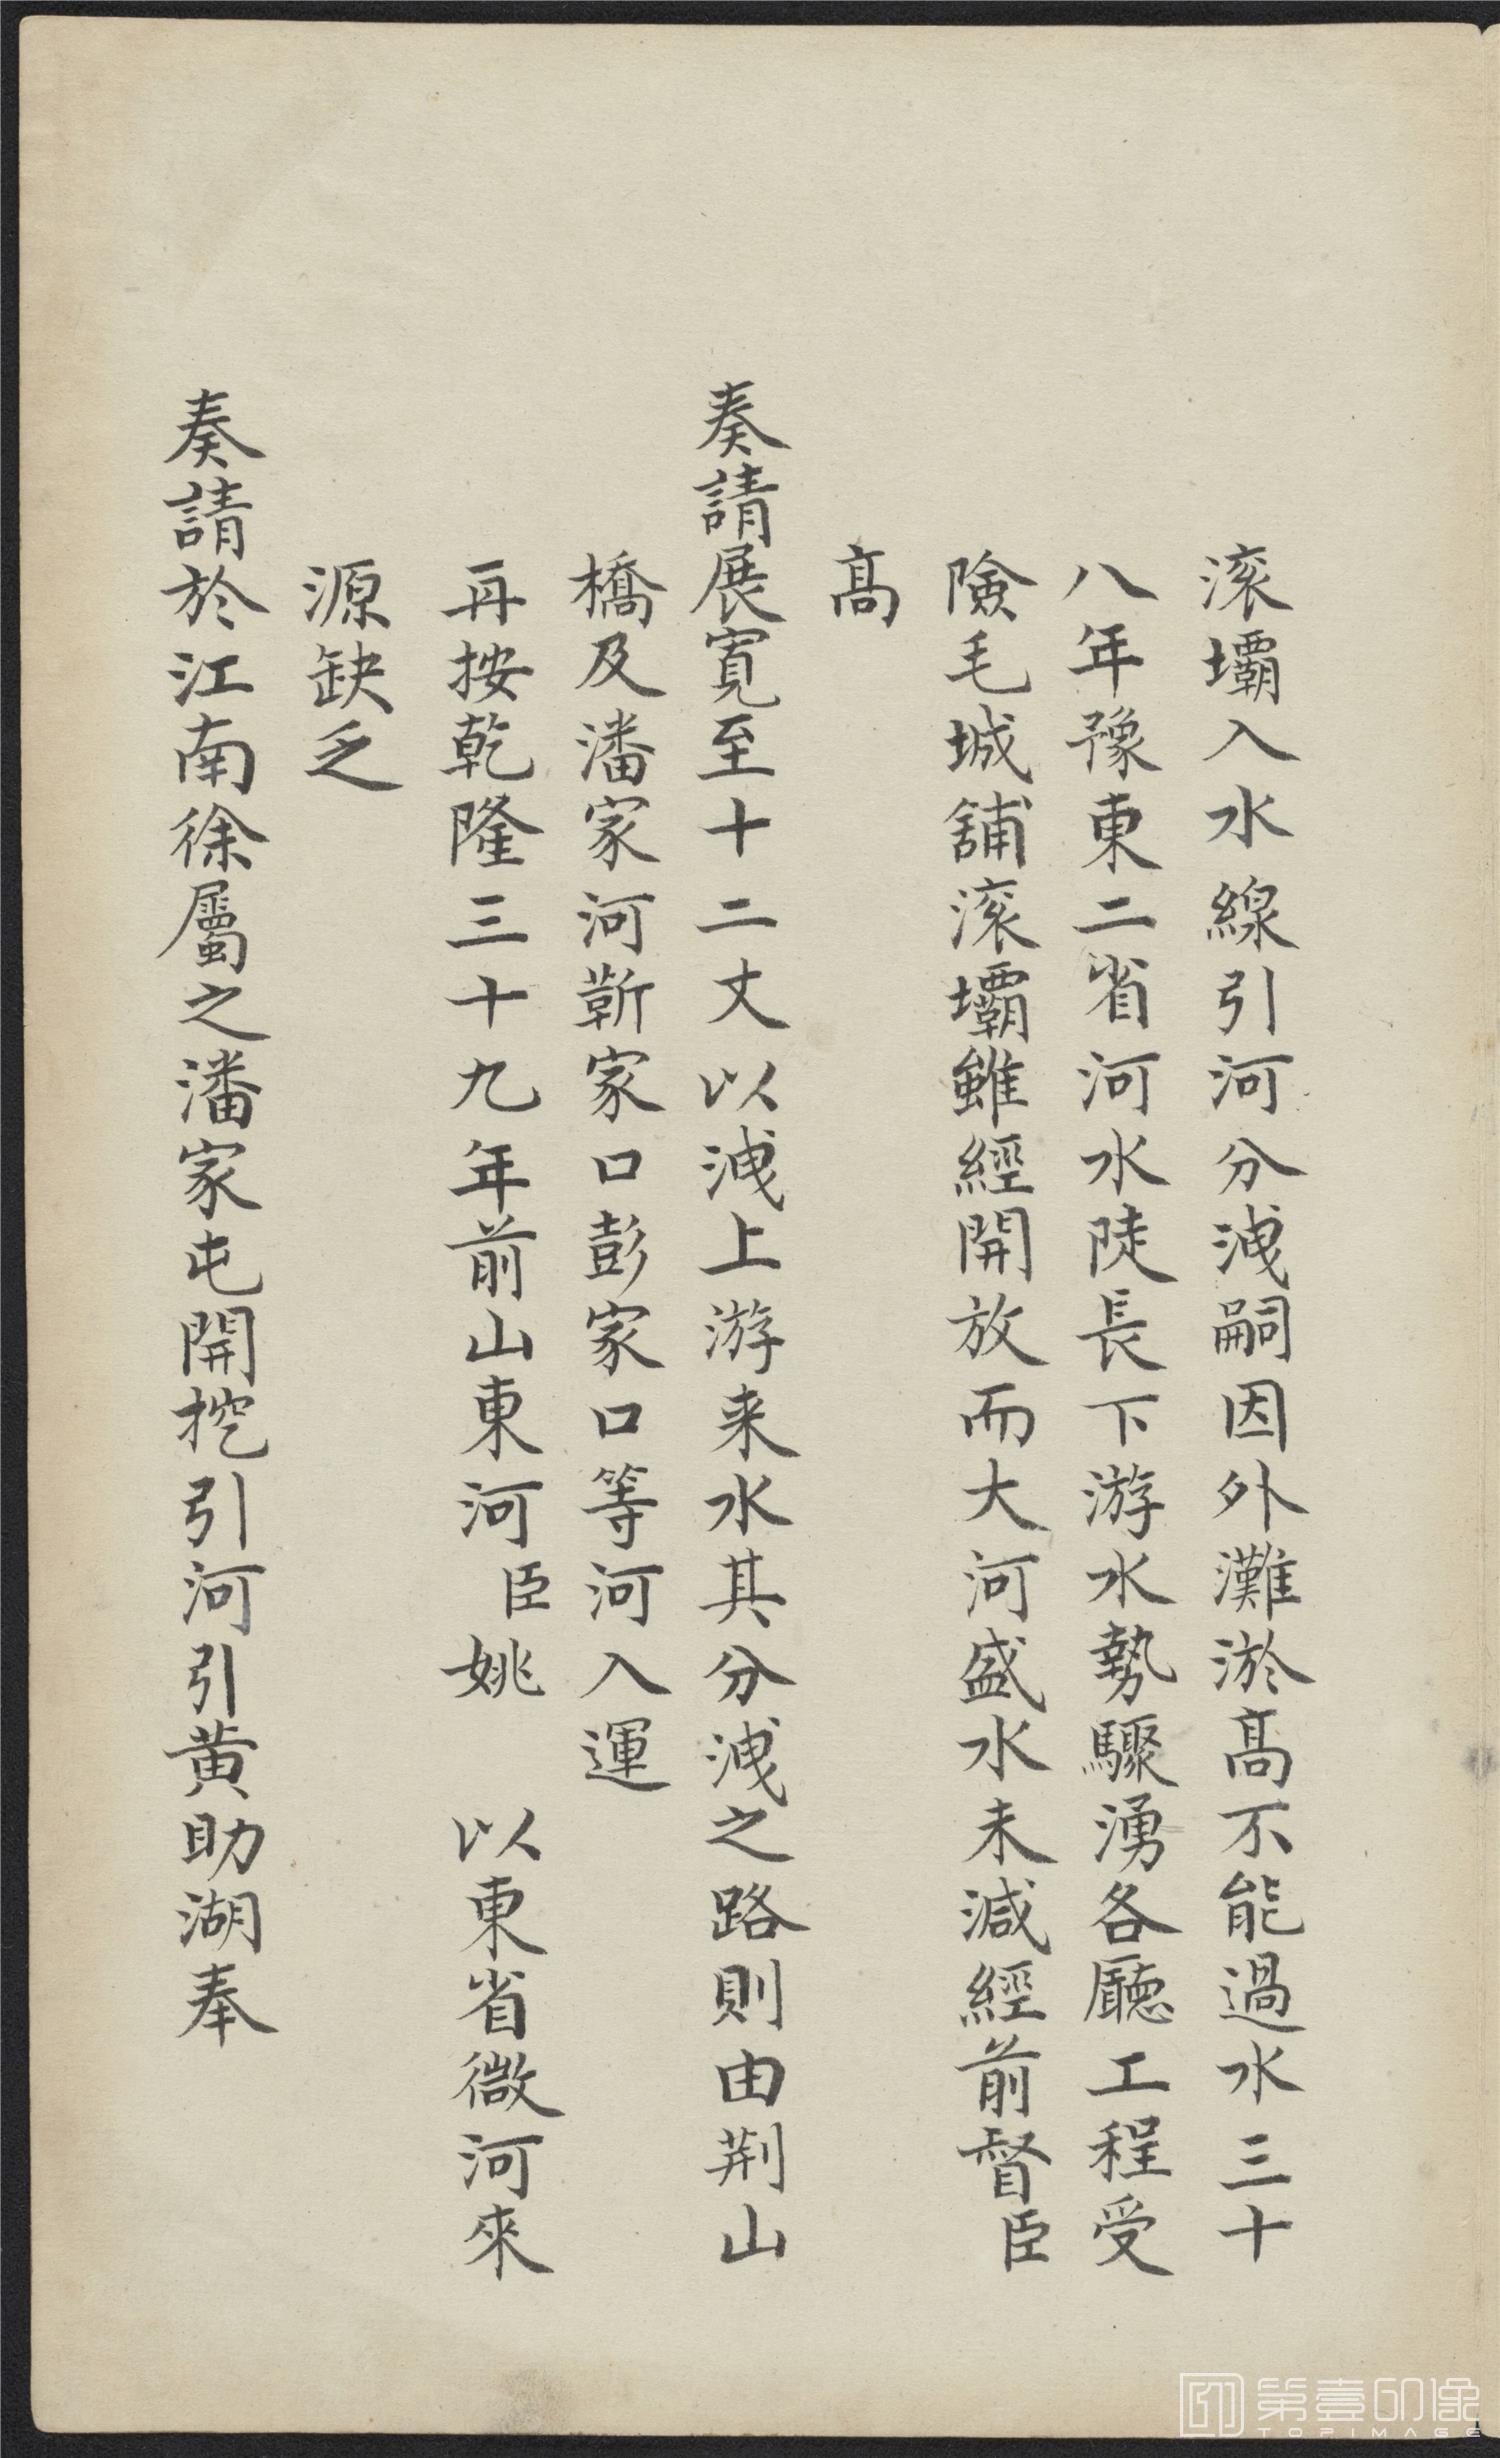 滚壩入水線引河分洩嗣因外灘淤高不能過水三十
八年豫東二省河水陡長下游水勢驟湧各廳工程受
險毛城舖滚壩雖經開放而大河盛水未減經前督臣
高
奏請展寬至十二丈以洩上游来水其分洩之路則由荆山
橋及潘家河靳家口彭家口等河入運
再按乾隆三十九年前山東河臣姚 以東省微河來
源缺乏
奏請於江南徐屬之潘家屯開挖引河引黄助湖奉
第壹印像
TOPIMAGE